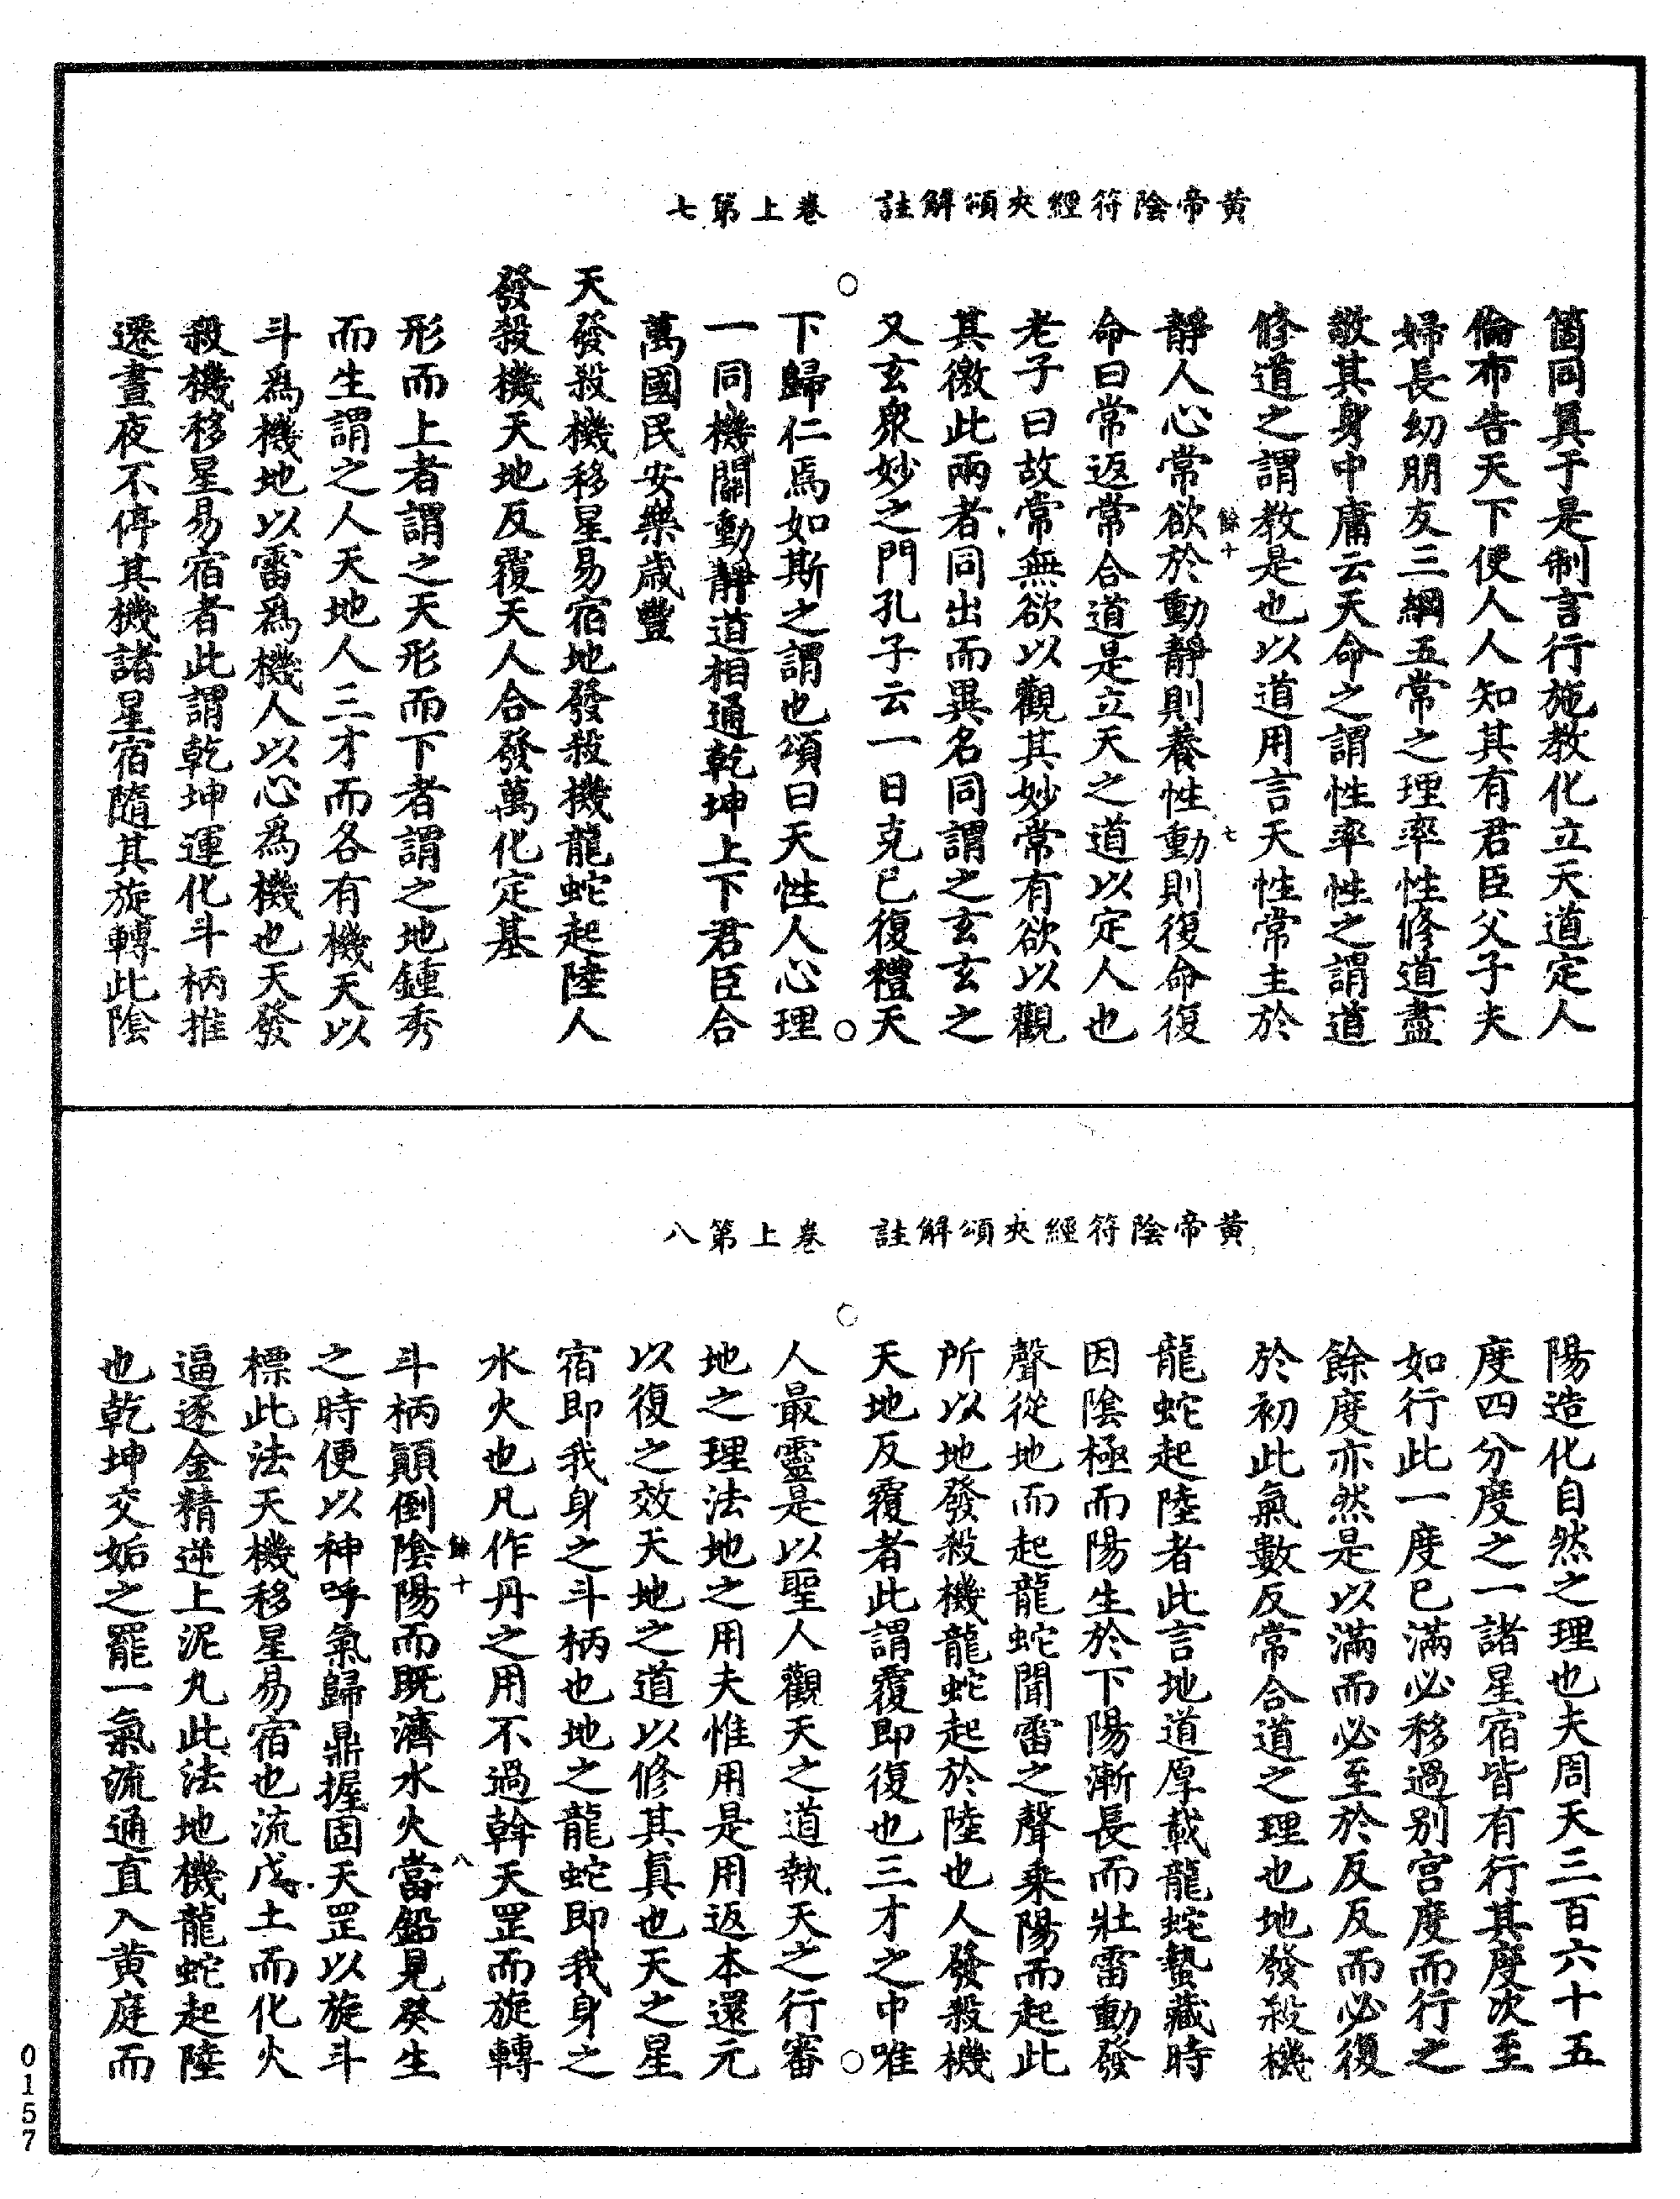 黃帝陰符經夾頌解註　卷上第七
箇同異于是制言行施教化立天道定人
倫布告天下使人人知其有君臣父子夫
婦長幼朋友三綱五常之理率性修道盡
敬其身中庸云天命之謂性率性之謂道
修道之謂教是也以道用言天性常主於
餘十　七
靜人心常欲於動靜則養性動則復命復
命曰常返常合道是立天之道以定人也
老子曰故常無欲以觀其妙常有欲以觀
其徼此兩者同出而異名同謂之玄玄之
又玄衆妙之門孔子云一日克已復禮天
下歸仁焉如斯之謂也頌曰天性人心理
一同機關動靜道相通乾坤上下君臣合
萬國民安樂歲豐
天發殺機移星易宿地發殺機龍蛇起陸人
發殺機天地反覆天人合發萬化定基
形而上者謂之天形而下者謂之地鍾秀
而生謂之人天地人三才而各有機天以
斗爲機地以雷爲機人以心爲機也天發
殺機移星易宿者此謂乾坤運化斗柄推
遷晝夜不停其機諸星宿隨其旋轉此陰
黃帝陰符經夾頌解註　卷上第八
陽造化自然之理也夫周天三百六十五
度四分度之一諸星宿皆有行其度次至
如行此一度已滿必移過别宮度而行之
餘度亦然是以滿而必至於反反而必復
於初此氣數反常合道之理也地發殺機
龍蛇起陸者此言地道厚載龍蛇蟄藏時
因陰極而陽生於下陽漸長而壯雷動發
聲從地而起龍蛇聞雷之聲乘陽而起此
所以地發殺機龍蛇起於陸也人發殺機
天地反覆者此謂覆即復也三才之中唯
人最靈是以聖人觀天之道執天之行審
地之理法地之用夫惟用是用返本還元
以復之效天地之道以修其眞也天之星
宿即我身之斗柄也地之龍蛇即我身之
水火也凡作丹之用不過斡天罡而旋轉
餘十　八
斗柄顛倒陰陽而既濟水火當鉛見癸生
之時便以神呼氣歸鼎握固天罡以旋斗
標此法天機移星易宿也流戊土而化火
逼逐金精逆上泥丸此法地機龍蛇起陸
也乾坤交姤之罷一氣流通直入黃庭而
0157